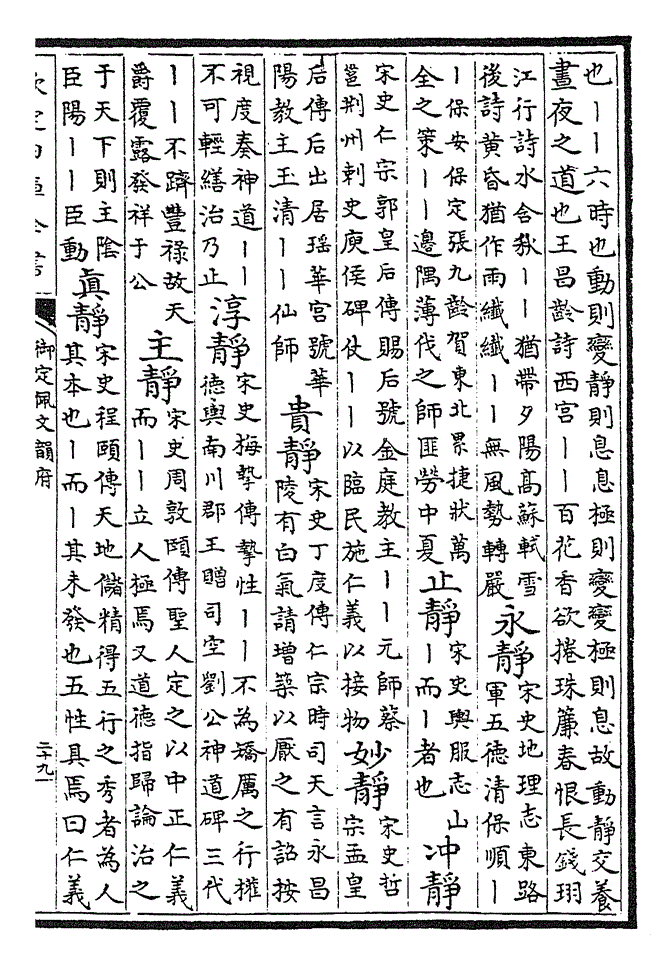 也丨丨六時也動則變靜則息息極則變變極則息故動靜交養
晝夜之道也王昌齡詩西宫丨丨百花香欲捲珠簾春恨長錢珝
江行詩水含秋丨丨猶帶夕陽髙蘇軾雪
後詩黄昏猶作雨纖纖丨丨無風勢轉嚴
永靜
宋史地理志東路
軍五徳清保順丨
丨保安保定張九齡賀東北累捷狀萬
全之策丨丨邊隅薄伐之師匪勞中夏
止靜
宋史輿服志山
丨而丨者也
冲靜
宋史仁宗郭皇后傳賜后號金庭教主丨丨元師蔡
邕荆州刺史庾侯碑仗丨丨以臨民施仁義以接物
妙靜
宋史哲
宗孟皇
后傳后出居瑶華宫號華
陽教主玉清丨丨仙師
貴靜
宋史丁度傳仁宗時司天言永昌
陵有白氣請增築以厭之有詔按
視度奏神道丨丨
不可輕繕治乃止
淳靜
宋史梅摯傳摯性丨丨不為矯厲之行擁
徳輿南川郡王贈司空劉公神道碑三代
丨丨不躋豐禄故天
爵覆露發祥于公
主靜
宋史周敦頤傳聖人定之以中正仁義
而丨丨立人極焉又道徳指歸論治之
于天下則主陰
臣陽丨丨臣動
眞靜
宋史程頤傳天地儲精得五行之秀者為人
其本也丨而丨其未發也五性具焉曰仁義
欽定四庫全書
御定佩文韻府
二十九